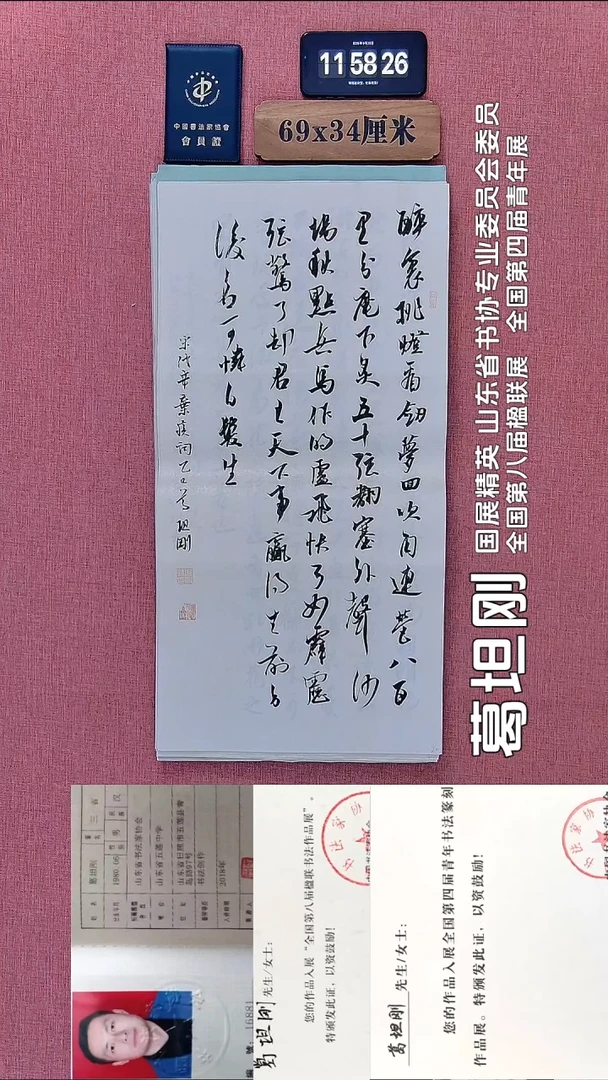 中國書法家協會
會員證
11 58 26
69x34厘米
醉裏挑燈看劍夢回吹角連營八百
里分麾下炙五十弦翻塞外聲沙
場秋點兵馬作的盧飛快弓如霹靂
弦驚了却君王天下事贏得生前身
後名可憐白髮生
宋代辛棄疾詞乙巳葛坦剛
葛坦刚
国展精英 山东省书协专业委员会委员
全国第八届楹联展 全国第四届青年展
姓名 葛坦刚
1980.06
山东省书法家协会
山东省五莲中学
书法创作
2018年
16881
葛坦刚 先生/女士：
您的作品入展“全国第八届楹联书法作品展”。
特颁发此证，以资鼓励！
葛坦刚 先生/女士：
您的作品入展全国第四届青年书法篆刻
作品展。特颁发此证，以资鼓励！